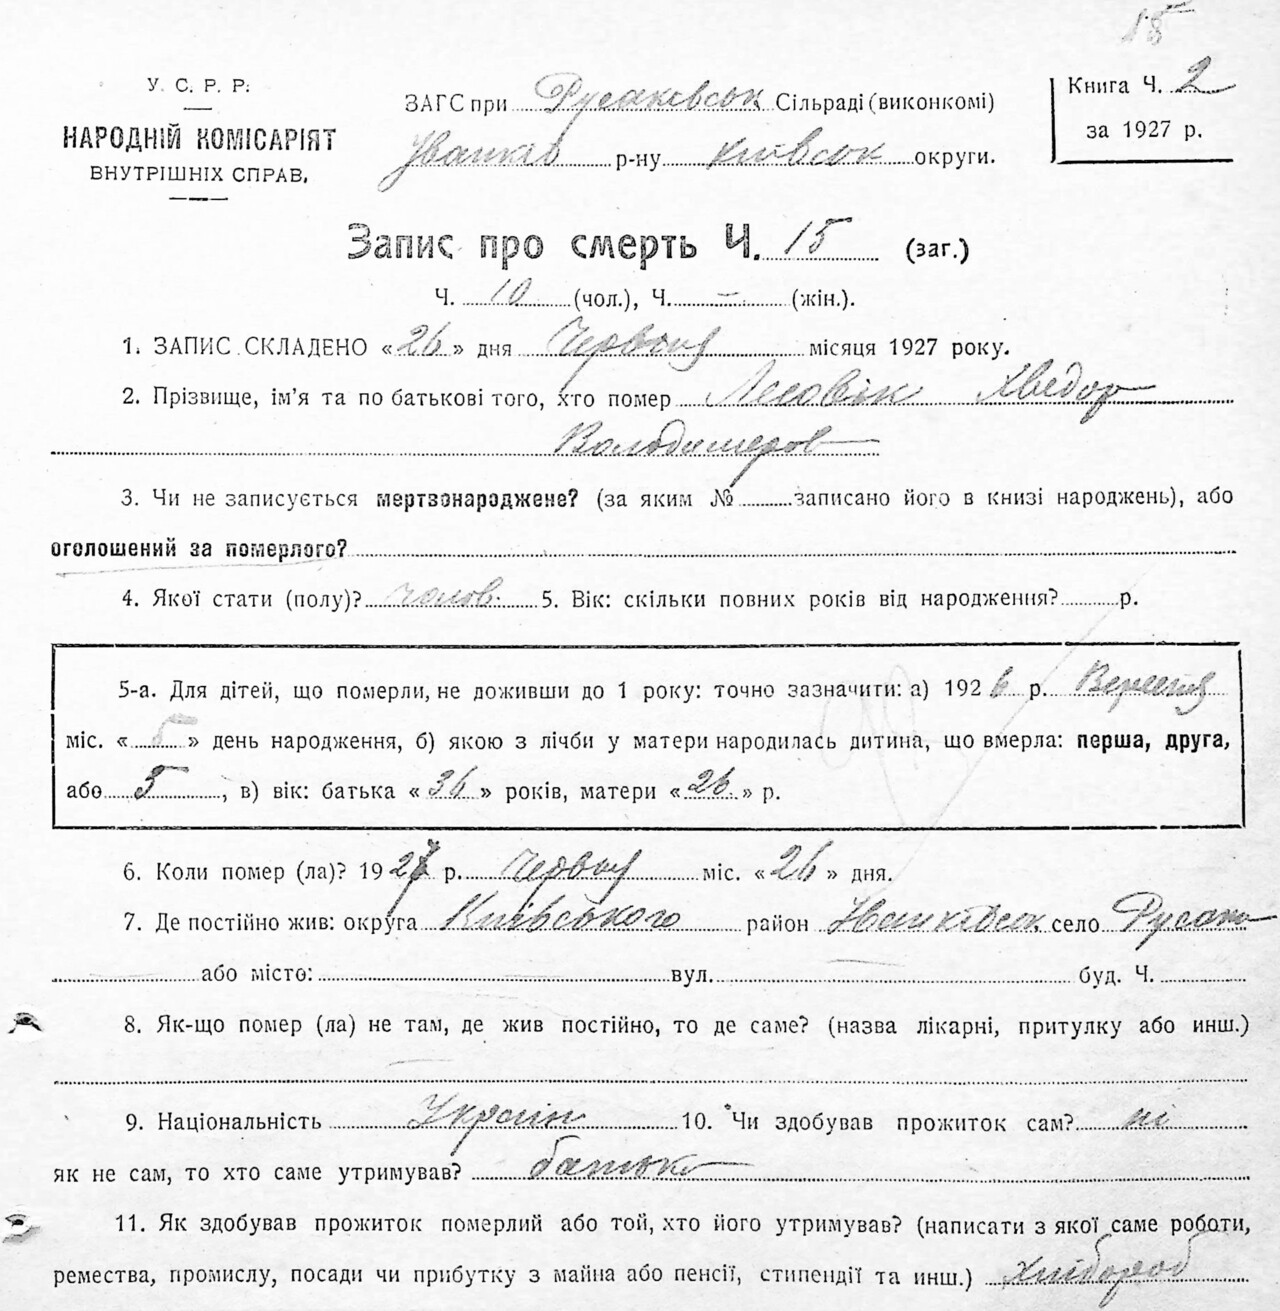 15
У. С. Р. Р.
НАРОДНІЙ КОМІСАРІЯТ
ВНУТРІШНІХ СПРАВ.
ЗАГС при Русаківськ Сільраді (виконкомі)
Іванків р-ну Київськ округи.
Книга Ч. 2
за 1927 р.
Запис про смерть Ч. 15 (заг.)
Ч. 10 (чол.), Ч. – (жін.).
1. ЗАПИС СКЛАДЕНО «26» дня Червня місяця 1927 року.
2. Прізвище, ім'я та по батькові того, хто помер Лісовік Хведор
Володимеров
3. Чи не записується мертвонароджене? (за яким № записано його в книзі народжень), або
оголошений за померлого?
4. Якої стати (полу)? чолов. 5. Вік: скільки повних років від народження? р.
5-а. Для дітей, що померли, не доживши до 1 року: точно зазначити: а) 1926 р. Вересня
міс. «5» день народження, б) якою з лічби у матери народилась дитина, що вмерла: перша, друга,
або 5, в) вік: батька «36» років, матери «26» р.
6. Коли помер (ла)? 1927 р. Червня міс. «26» дня.
7. Де постійно жив: округа Київського район Іванківськ. село Русаки
або місто: вул. буд. Ч.
8. Як-що помер (ла) не там, де жив постійно, то де саме? (назва лікарні, притулку або инш.)
9. Національність Україн 10. Чи здобував прожиток сам? ні
як не сам, то хто саме утримував? батько
11. Як здобував прожиток померлий або той, хто його утримував? (написати з якої саме роботи,
ремества, промислу, посади чи прибутку з майна або пенсії, стипендії та инш.) Хлібороб